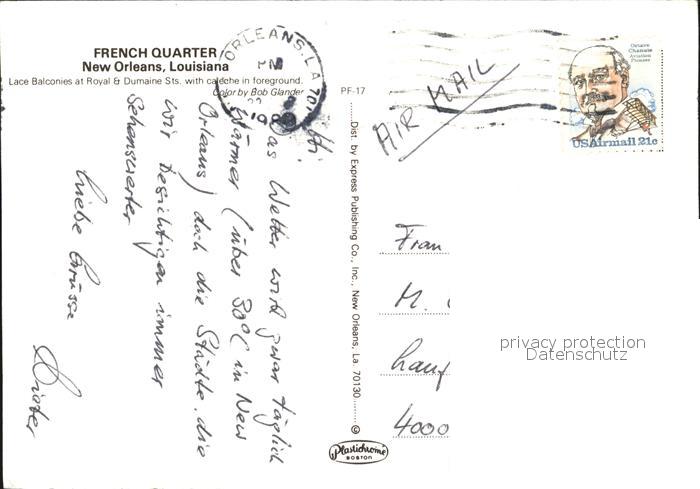 FRENCH QUARTER
New Orleans, Louisiana
Lace Balconies at Royal & Dumaine Sts. with caleche in foreground.
Color by Bob Glander
PF-17
ORLEANS, LA 701
PM
22
AIR MAIL
Octave
Chanute
Aviation
Pioneer
USAirmail 21c
Hi.
das Wetter wird zwar täglich
wärmer (über 30°C in New
Orleans) doch die Städte, die
wir besichtigen immer
sehenswerter
Liebe Grüsse
Dieter
Dist. by Express Publishing Co., Inc., New Orleans, La. 70130
©
Plastichrome
BOSTON
Frau
M.
Lang
4000
privacy protection
Datenschutz